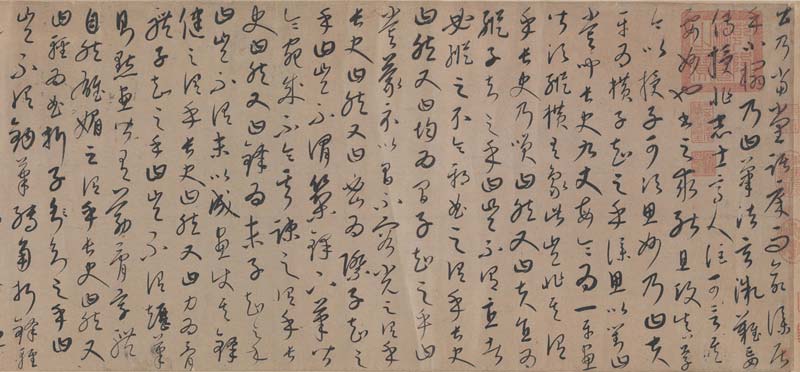 乃當堂踞床而命僕居
乎小榻乃曰筆法玄微難妄
傳授非志士高人詎可言其
要妙也書之求能且攻真草
今以授子可須思妙乃曰夫
平為橫子知之乎僕思以對曰
嘗聞長史九丈每令為一平畫
皆須縱橫有象此豈非其謂
乎長史乃笑曰然又曰夫直為
縱子知之乎曰豈不謂直者
必縱之不令邪曲之謂乎長史
曰然又曰均為間子知之乎曰
嘗蒙示以間不容光之謂乎
長史曰然又曰密為際子知之
乎曰豈不謂築鋒下筆皆
令宛成不令其疎之謂乎長
史曰然又曰鋒為末子知之乎
曰豈不謂末以成畫使其鋒
健之謂乎長史曰然又曰力為骨
體子知之乎曰豈不謂趯筆
則點畫皆有筋骨字體
自然雄媚之謂乎長史曰然又
曰輕為曲折子知之乎曰
豈不謂鉤筆轉角折鋒輕